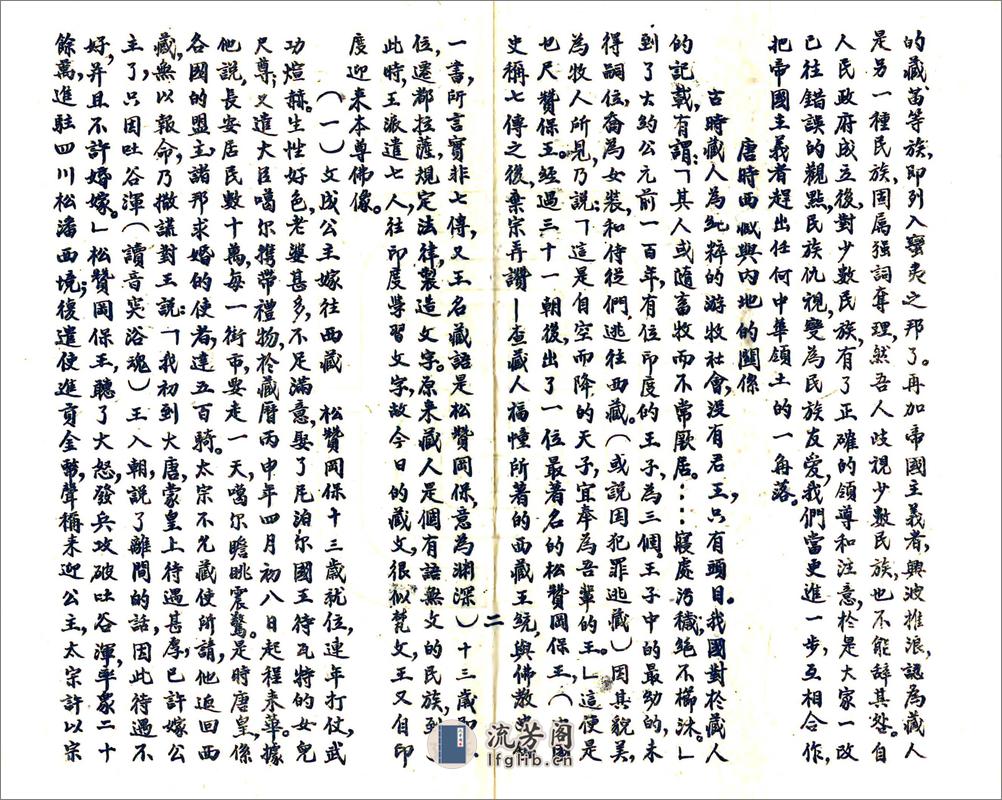 的藏苗等族，即列入蠻夷之邦了。再加帝國主義者，興波推浪，認為藏人
是另一種民族，固屬强詞奪理，然吾人歧視少數民族，也不能辭其咎。自
人民政府成立後，對少數民族，有了正確的領導和注意，於是大家一改
已往錯誤的觀點，民族仇視，變為民族友愛，我們當更進一步，互相合作，
把帝國主義者趕出任何中華領土的一角落。
唐時西藏與內地的關係
古時藏人為純粹的游牧社會，沒有君王，只有頭目。我國對於藏人
的記載，有謂：「其人或隨畜牧而不常厥居。……寢處污穢，絕不櫛沐。」
到了大約公元前一百年，有位印度的王子，為三個。王子中的最幼的，未
得嗣位，喬為女裝，和侍從們逃往西藏。（或說因犯罪逃藏）因其貌美，
為牧人所見，乃說：「這是自空而降的天子，宜奉為吾輩的王。」這便是
乜尺贊保王。經過三十一朝後，出了一位最著名的松贊岡保王，（
史稱七傳之後，棄宗弄讚—查藏人福幢所著的西藏王統，與佛教史
二
一書，所言實非七傳，又王名藏語是松贊岡保，意為淵深）十三歲
位，遷都拉薩，規定法律，製造文字。原來藏人是個有語無文的民族，到
此時，王派遣七人，往印度學習文字，故今日的藏文，很似梵文，王又自印
度迎來本尊佛像。
（一）文成公主嫁往西藏　松贊岡保十三歲就位，連年打仗，武
功煊赫。生性好色，老婆甚多，不足滿意，娶了尼泊尔國王待瓦特的女兒
尺尊；又遣大臣噶尔携帶禮物，於藏曆丙申年四月初八日起程來華。據
他說，長安居民數十萬，每一街市，要走一天，噶尔瞻眺震驚。是時唐皇，係
各國的盟主，諸邦求婚的使者，達五百騎。太宗不允藏使所請，他返回西
藏，無以報命，乃撒謊對王說：「我初到大唐，蒙皇上待遇甚厚，已許嫁公
主了，只因吐谷渾（讀音突浴魂）王入朝，說了離間的話，因此待遇不
好，并且不許婚嫁。」松贊岡保王，聽了大怒，發兵攻破吐谷渾，率衆二十
餘萬，進駐四川松潘西境；復遣使進貢金幣，聲稱來迎公主，太宗許以宗
流芳阁
lfglib.cn